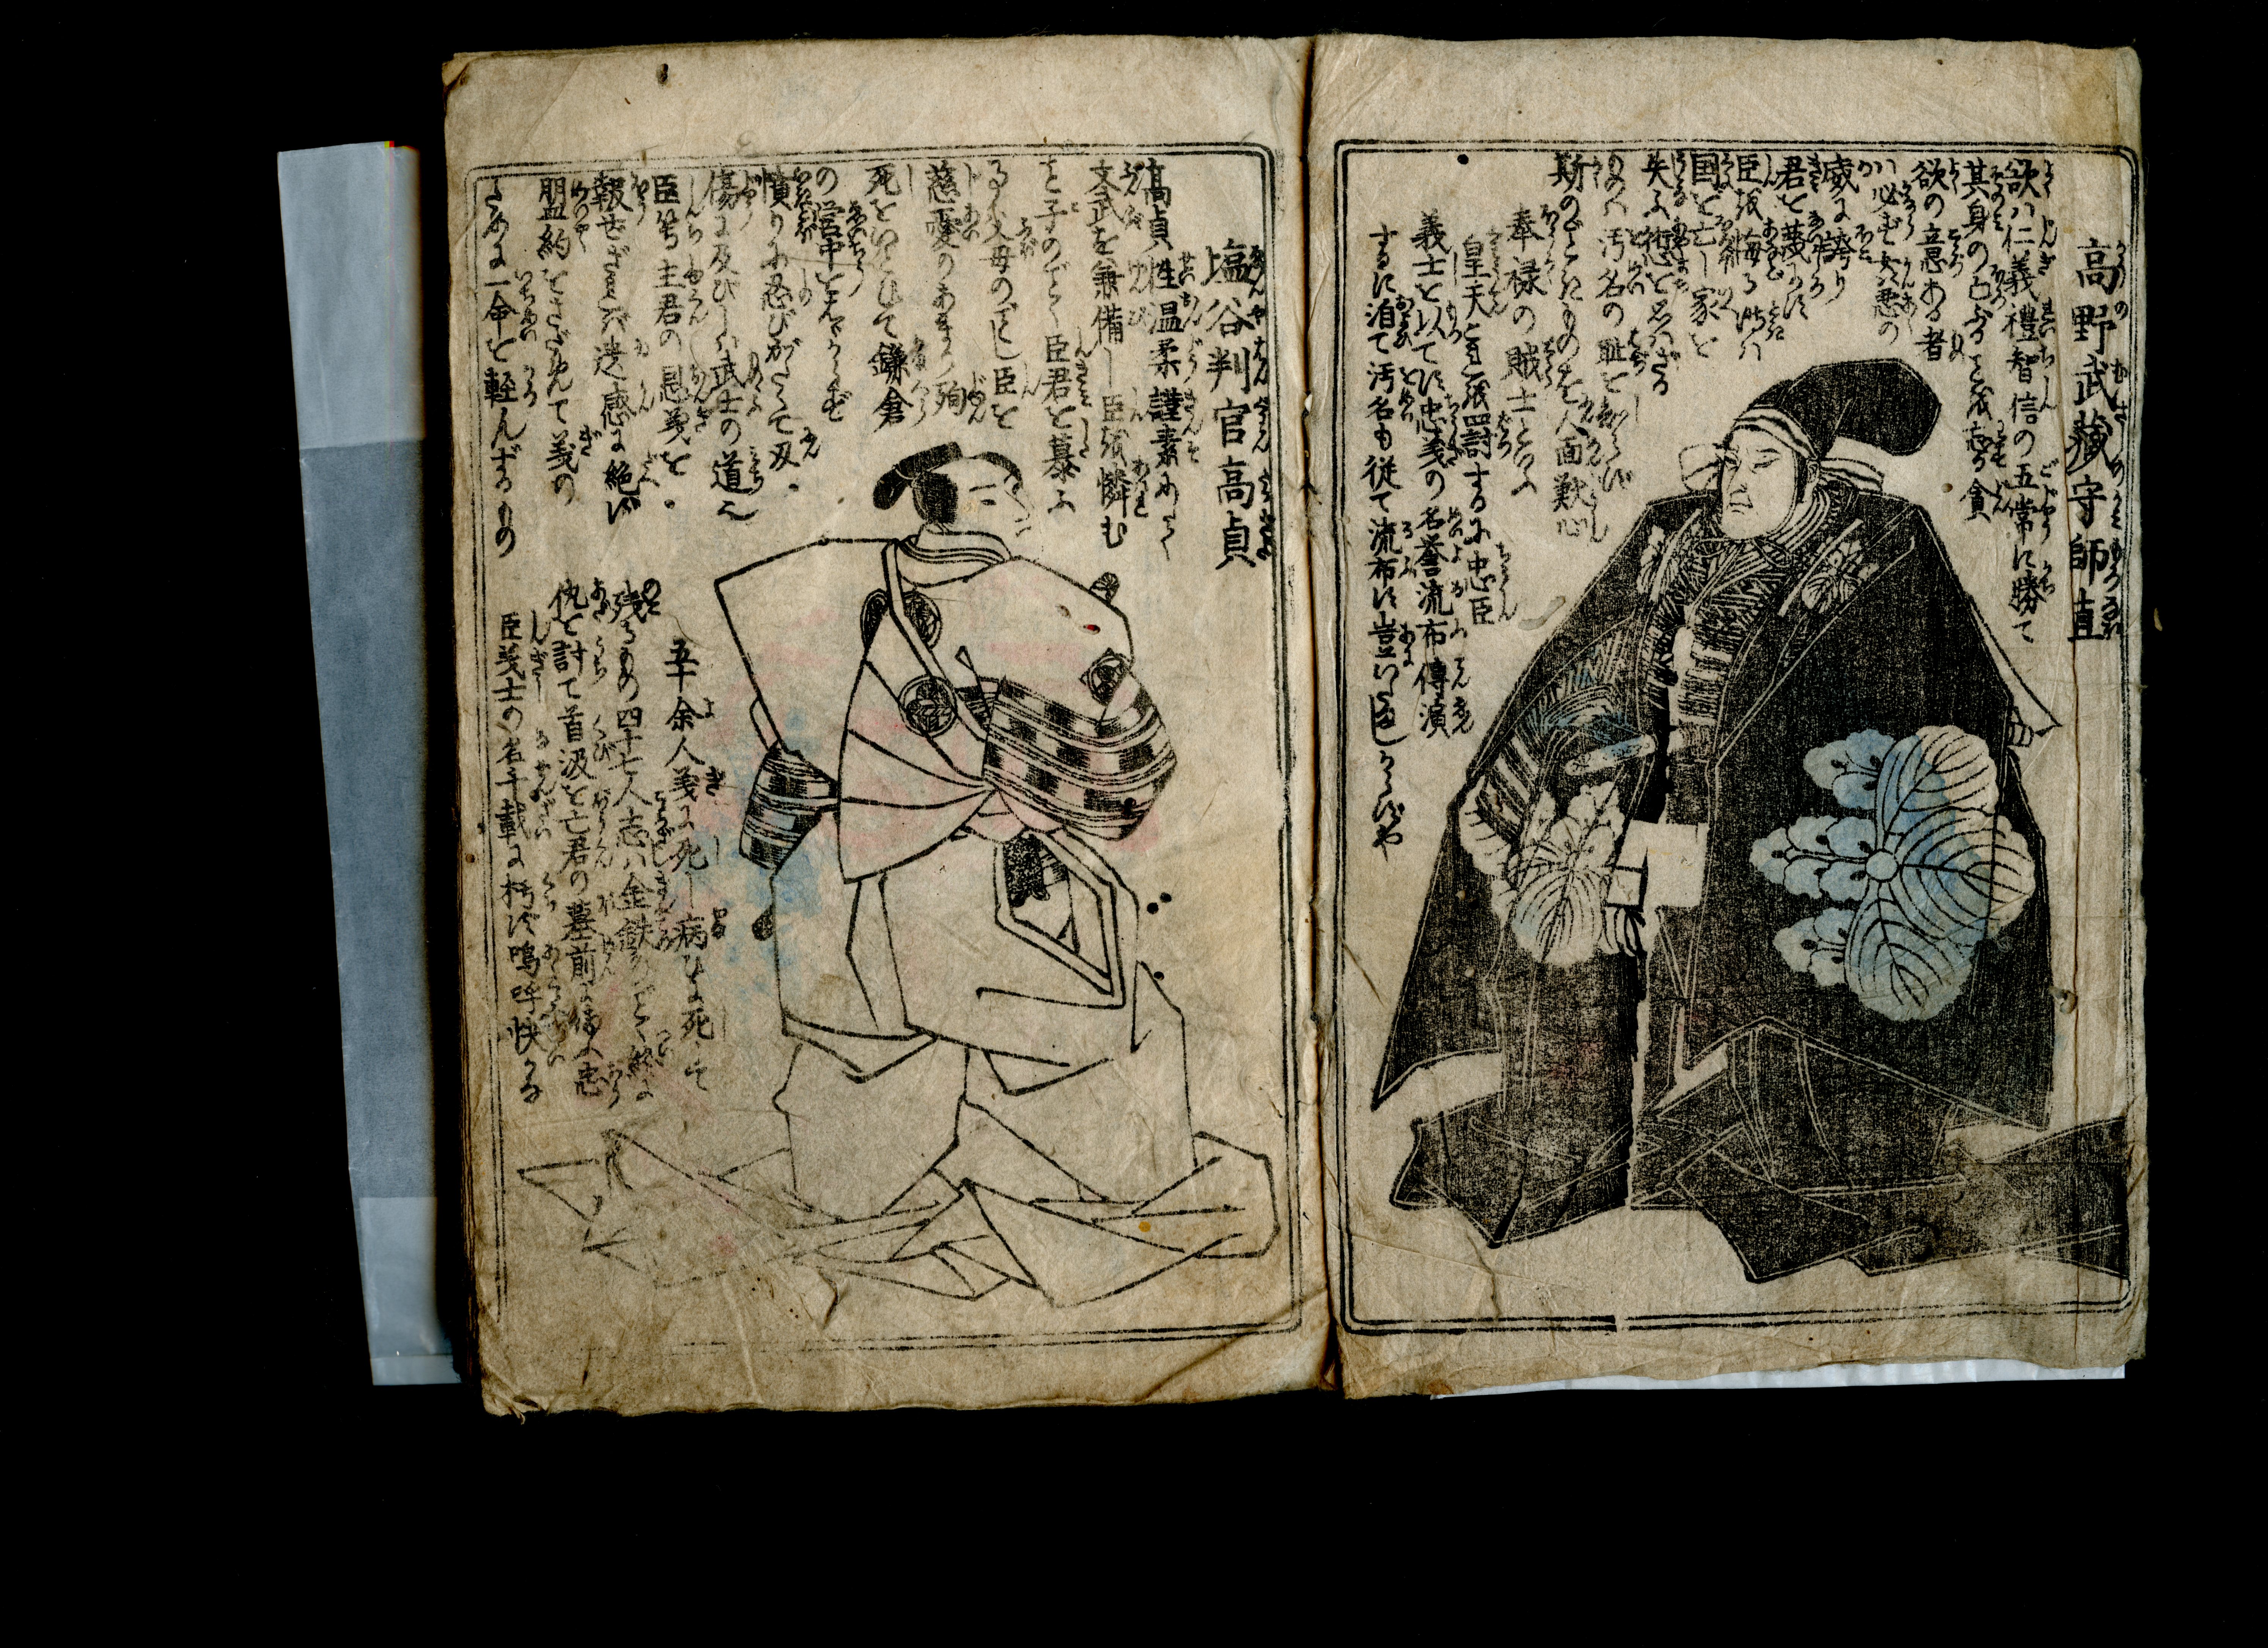 高野武藏守師直
欲ハ仁義禮智信の五常に勝て
其身の亡ぶるを不志る貪
欲の意ある者
ハ必ず大悪の
威に誇り
君を蔑りに
臣を侮る時ハ
国を亡し家を
失ふ 恋と名ハざる
のみハ汚名の耻を
斯のごときのものを人面獣心
奉禄の賊士といふ
皇天これを罰するに忠臣
義士を以てに忠義の名誉流布傳演
するに泪て汚名も従て流布に豈い
塩谷判官高貞
高貞性温柔謹素にして
文武を兼備し臣を憐む
を子のごとく臣君を慕ふ
る父母のごとし臣を
慈憂のあまり殉
死をいとひて鎌倉
の営中をもはゞからず
憤りに忍びがたくて刄
傷に及びしハ武士の道
臣等主君の恩義を
報せざれバ遺感に絶ず
盟約をさだめて義の
ために一命を軽んずるもの
五十余人義に死し病ひに死して
残るもの四十七人志ハ金鉄のごとく終に
仇を討て首汲を亡君の墓前に備ふ忠
臣義士の名千載に朽ず嗚呼快かな